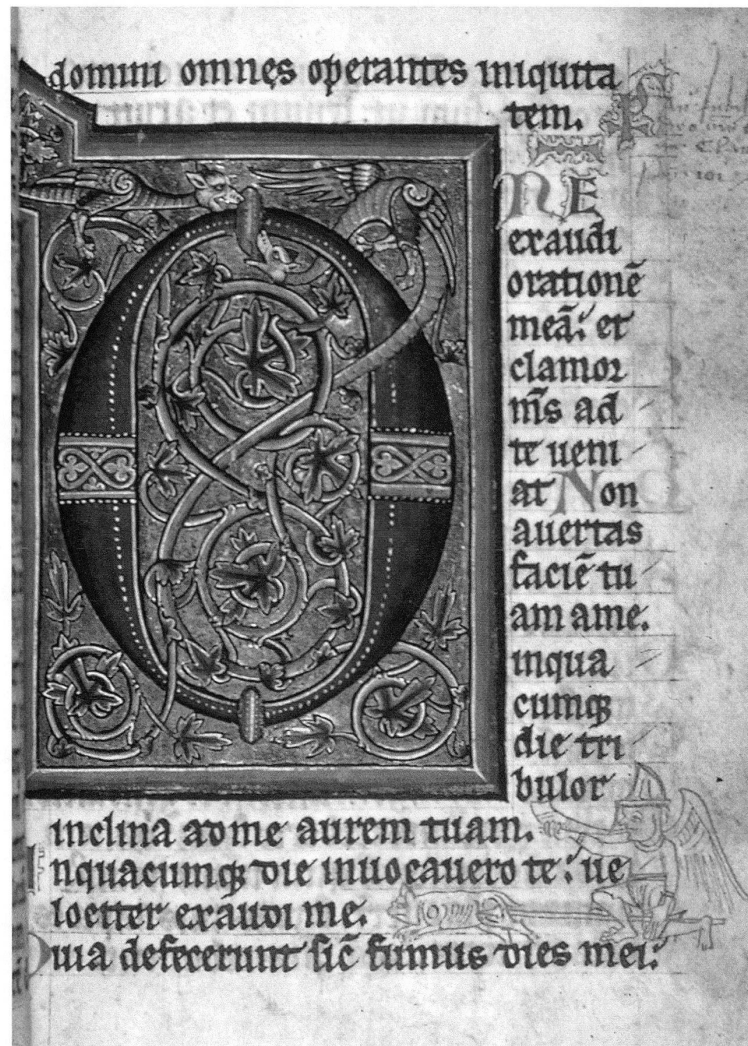 domini omnes operantes iniquita
tem.
NE
exaudi
orationē
meā: et
clamor
m̄s ad
te ueni
at Non
auertas
faciē tu
am ame.
inqua
cumqꝫ
die tri
bulor
inclina ad me aurem tuam.
Inquacumqꝫ die inuocauero te: ue
lociter exaudi me.
Quia defecerunt sic̄ fumus dies mei: